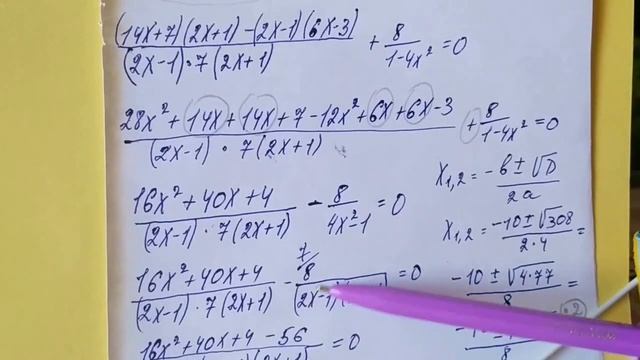 ((14x+7)(2x+1)-(2x-1)(6x-3))/((2x-1)·7(2x+1)) + 8/(1-4x²) = 0
(28x²+14x+14x+7-12x²+6x+6x-3)/((2x-1)·7(2x+1)) + 8/(1-4x²) = 0
(16x²+40x+4)/((2x-1)·7(2x+1)) - 8/(4x²-1) = 0
(16x²+40x+4)/((2x-1)·7(2x+1)) - 7/8/(2x-1) = 0
16x²+40x+4-56 = 0
X₁,₂ = (-b±√D)/2a
X₁,₂ = (-10±√308)/(2·4) =
(-10±√(4·77))/8 =
:2
8